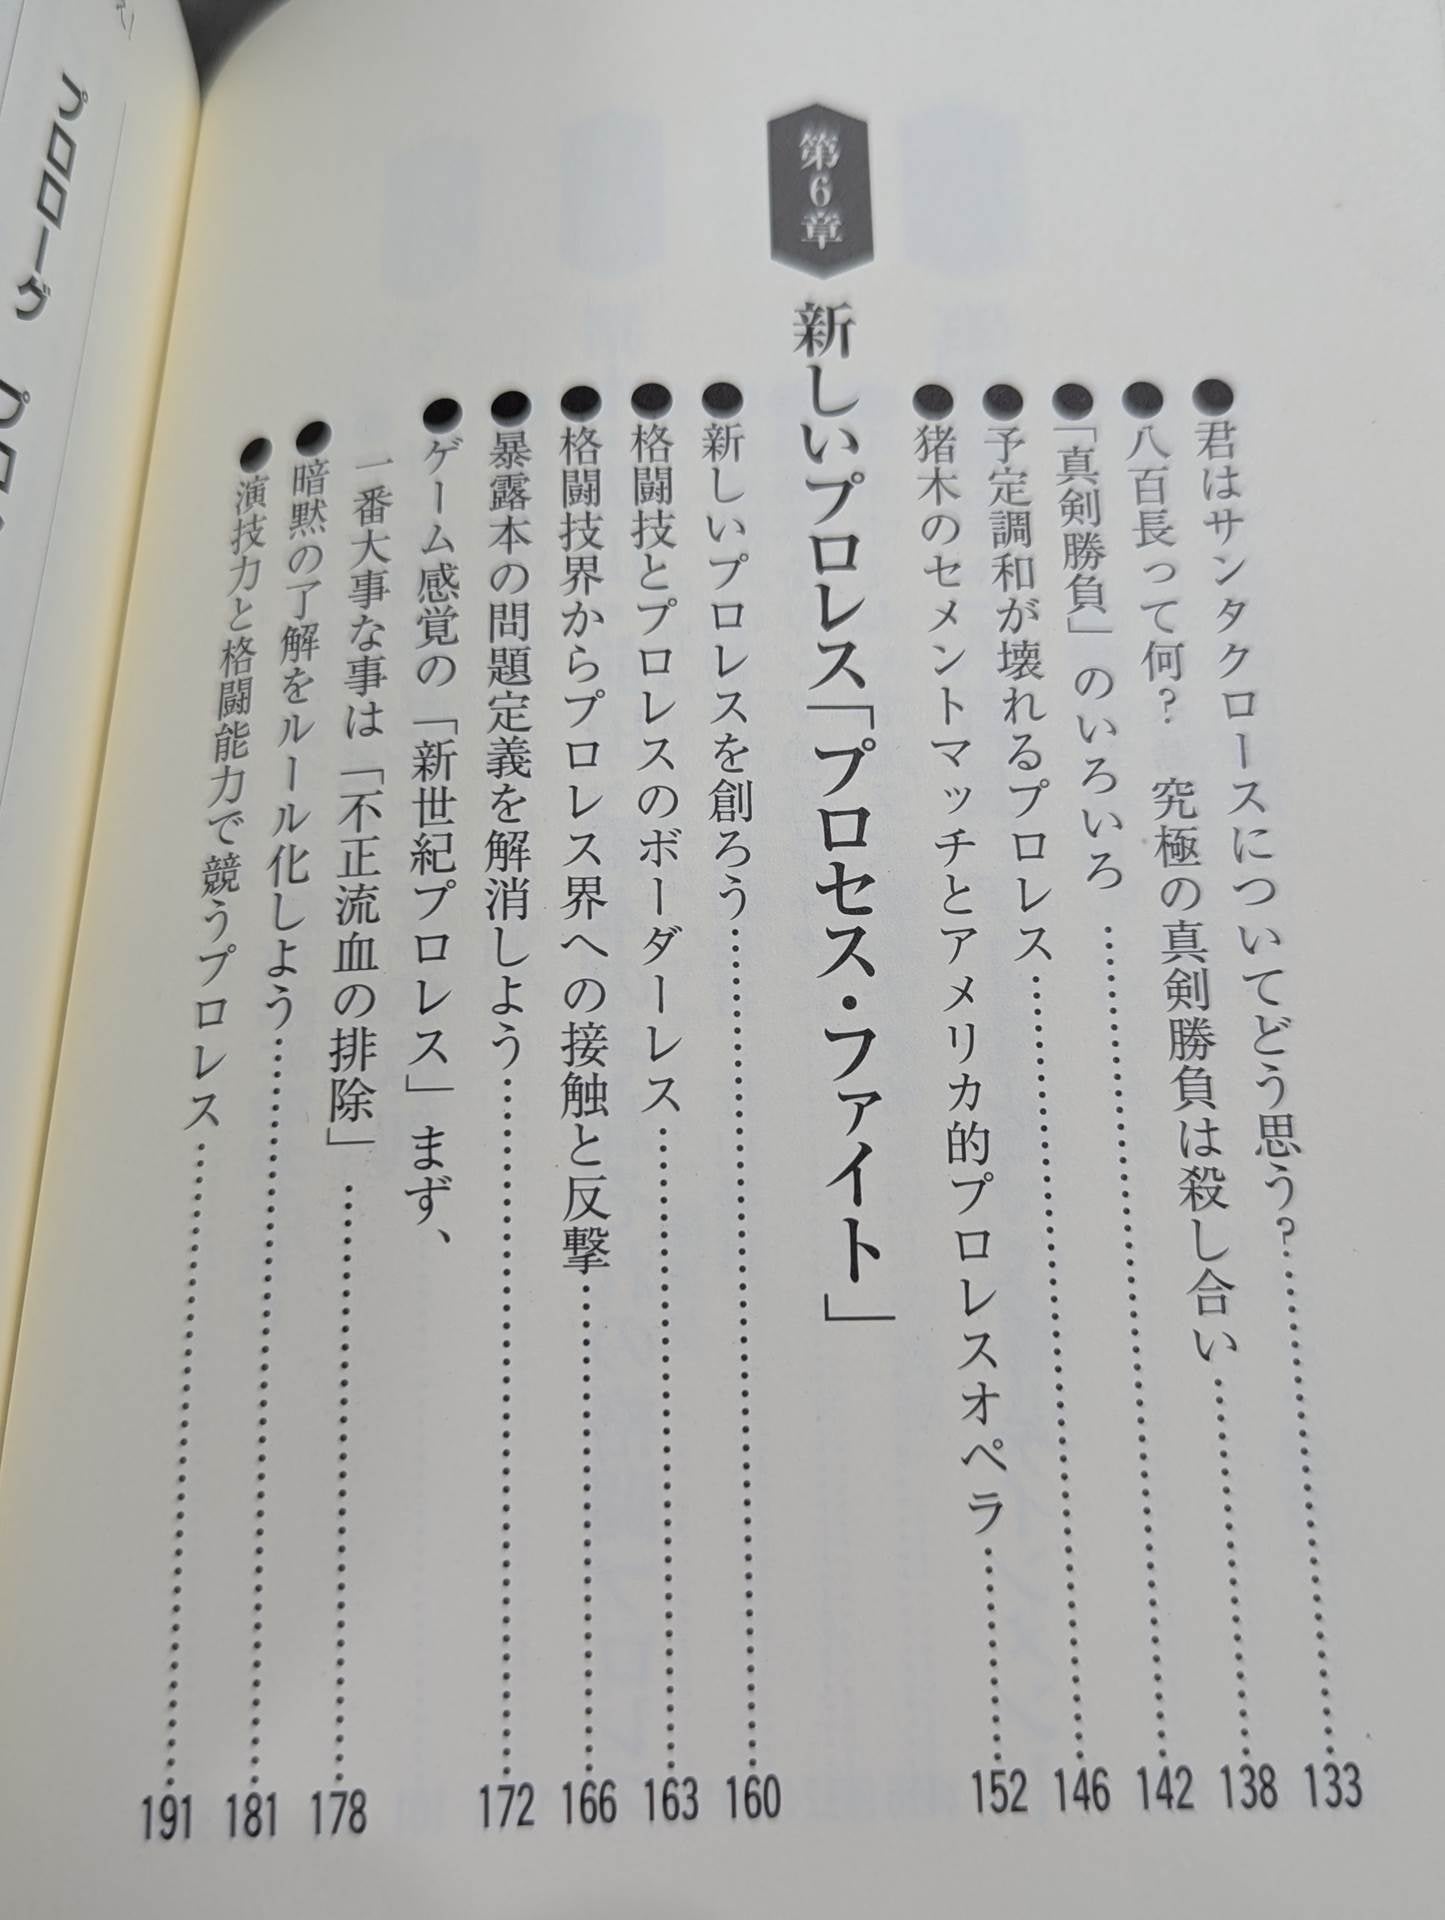 ●君はサンタクロースについてどう思う?……133
●八百長って何?　究極の真剣勝負は殺し合い……138
●「真剣勝負」のいろいろ……142
●予定調和が壊れるプロレス……146
●猪木のセメントマッチとアメリカ的プロレスオペラ……152
第6章　新しいプロレス「プロセス・ファイト」
●新しいプロレスを創ろう……160
●格闘技とプロレスのボーダーレス……163
●格闘技界からプロレス界への接触と反撃……166
●暴露本の問題定義を解消しよう……172
●ゲーム感覚の「新世紀プロレス」まず、
一番大事な事は「不正流血の排除」……178
●暗黙の了解をルール化しよう……181
●演技力と格闘能力で競うプロレス……191
プロローグ